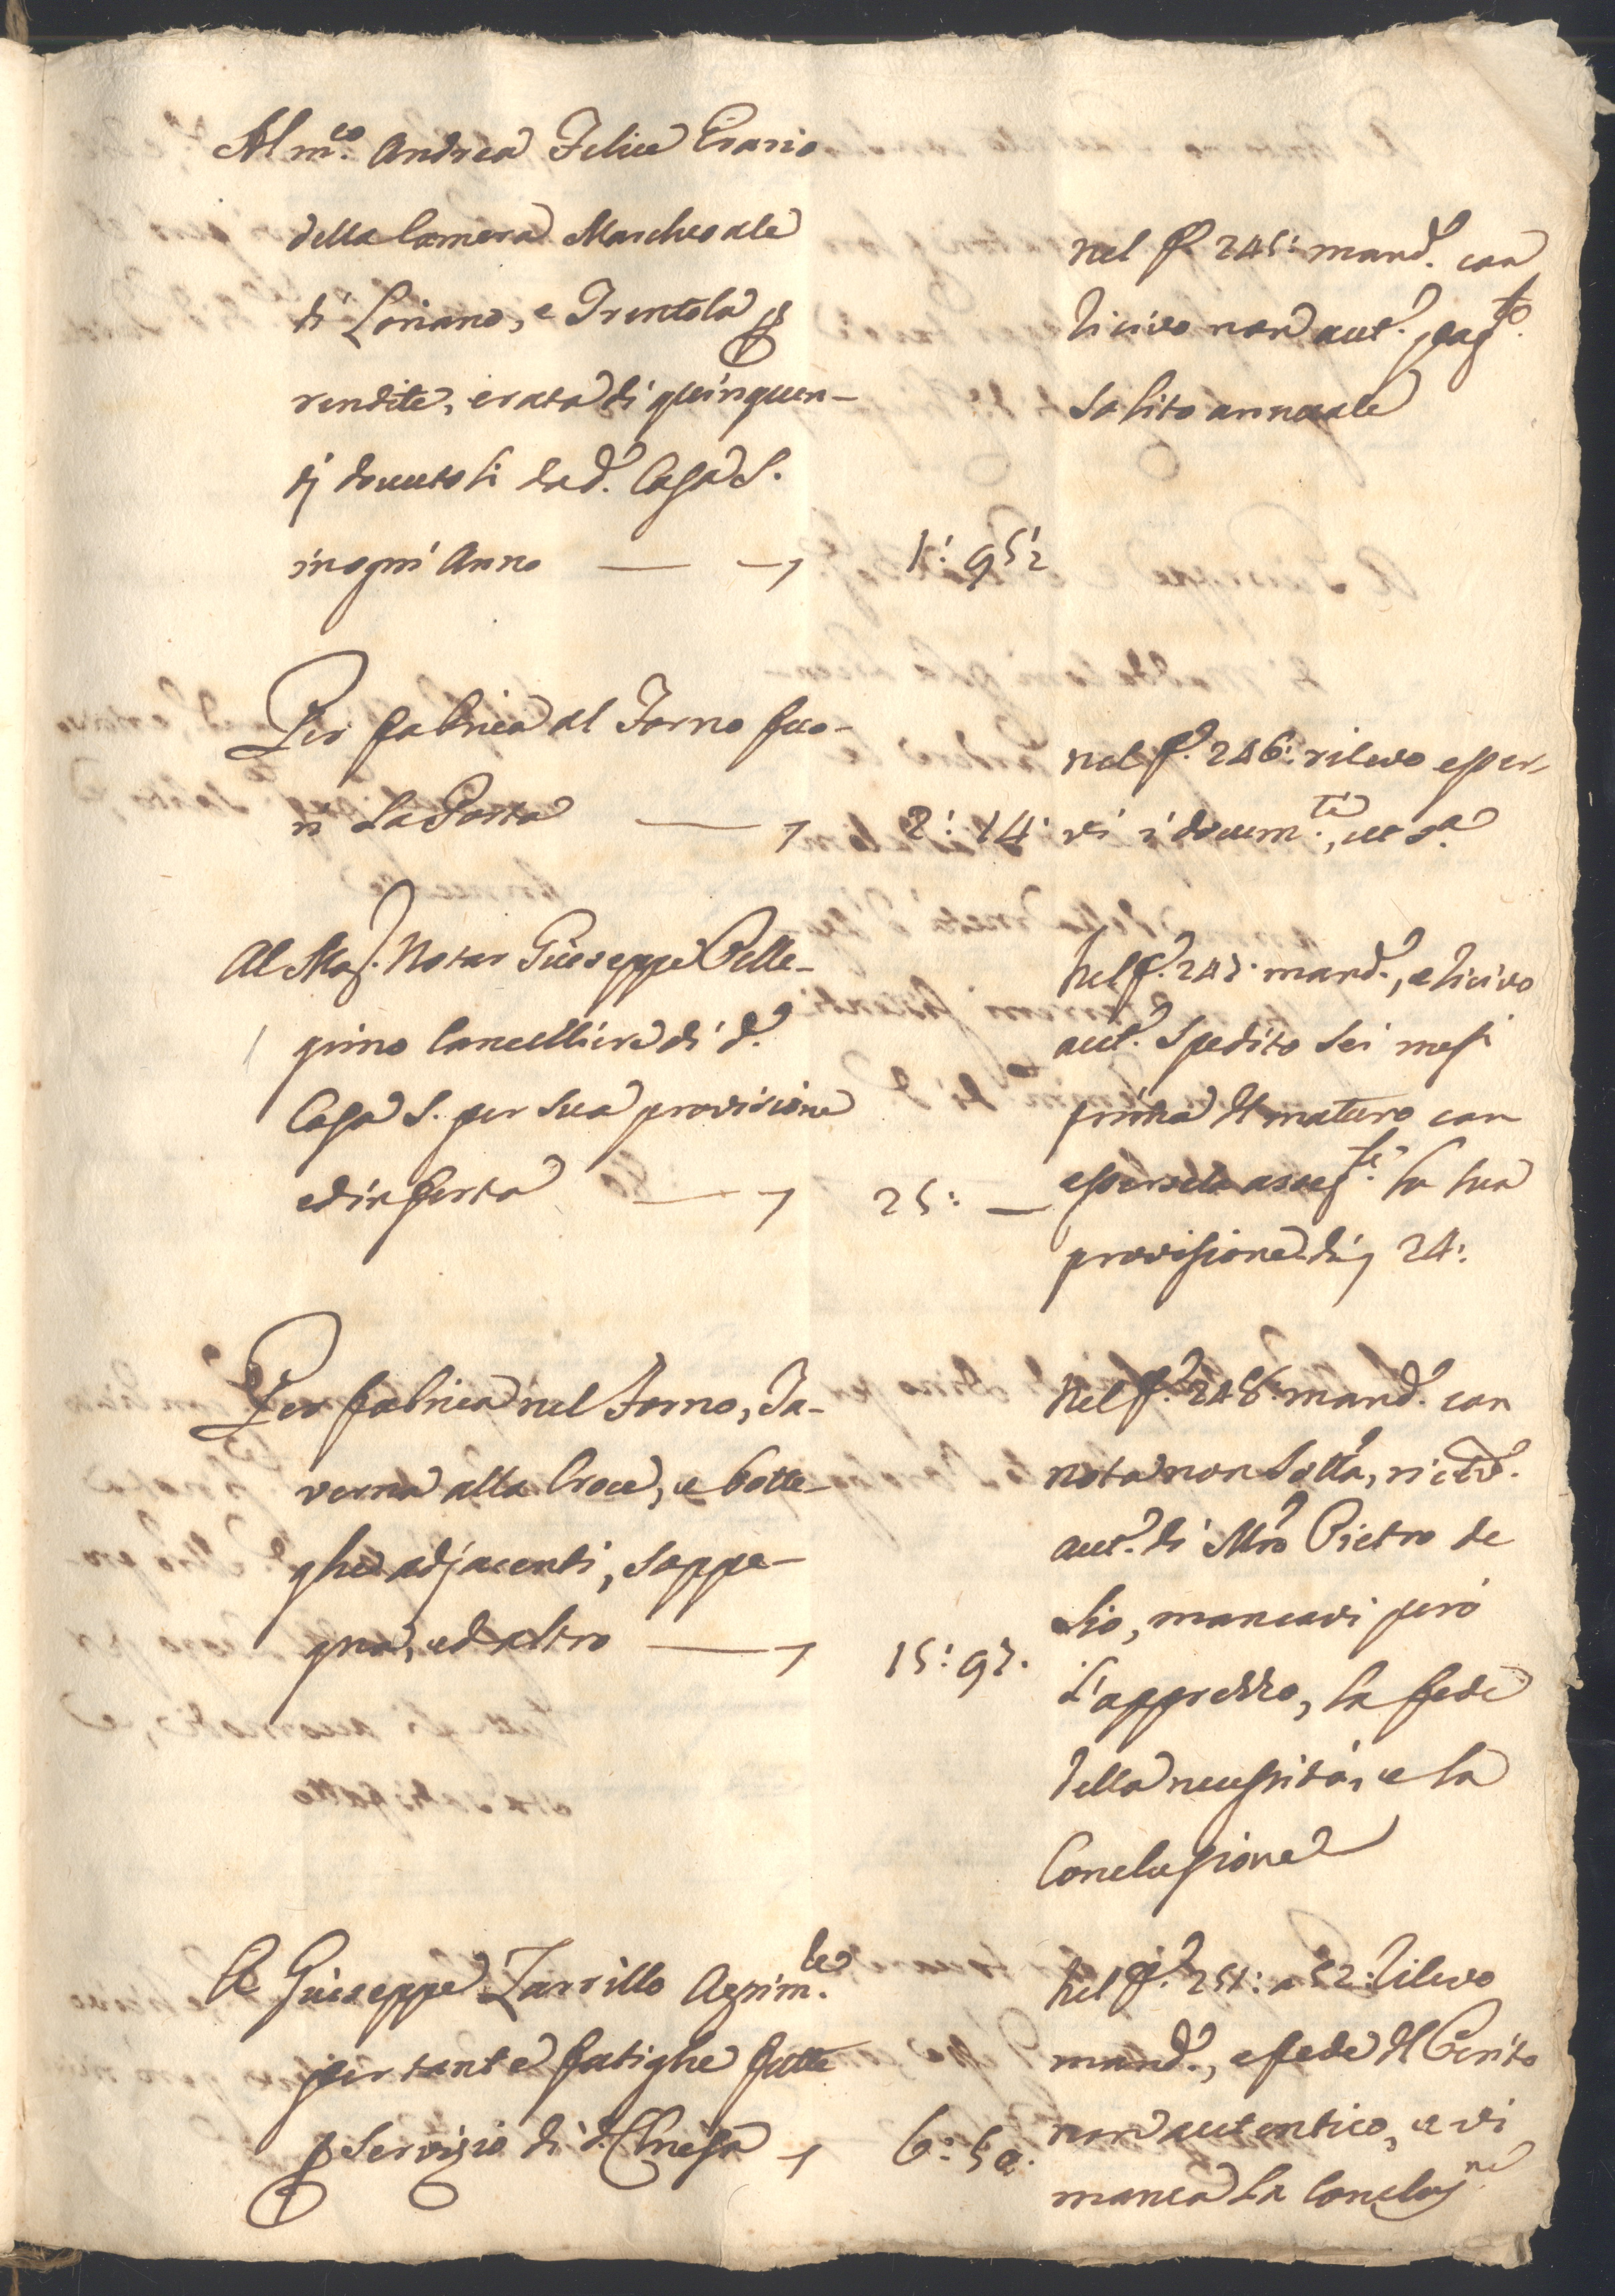 Al m.co Andrea Felice Erario
della Camera Marchesale
di Loriano, e Trentola p
rendite, e rata di quinquen-
nj dovutoli da d.a Casa S.
in ogni Anno — — 1: 95 1/2
nel f.o 245: mand.o con
ricivo non aut.o, pag.to
solito annuale
Per fabrica al Forno fuo-
ri La Porta — 2: 14:
nel f.o 246: rilevo esser-
vi i docum.ti, ut s.a
Al Mag. Notar Giuseppe Pelle-
grino Cancelliere di d.a
Casa S. per sua provisione
ed inferta — 25: —
nel f.o 247. mand.o, e ricivo
aut.o spedito sei mesi
prima del maturo con
essersela asseg.te la sua
provisione di 24:
Per fabrica nel Forno, Ta-
verna alla Croce, e botte-
ghe adjacenti, soppe-
gna, ed altro — 15: 97.
nel f.o 248: mand.o con
nota non sotta, ricivo
aut.o di Mro Pietro de
Sio, mancavi però
l'apprezzo, la fede
della necessità, e la
Conclusione
A Giuseppe Zarrillo Agrim.re
per tante fatighe fatte
p servizio di d. Chiesa 6: 50.
nel f.o 251: a 52: rilevo
mand.o, e fede del Perito
non autentico, e vi
manca la Conclus.ne